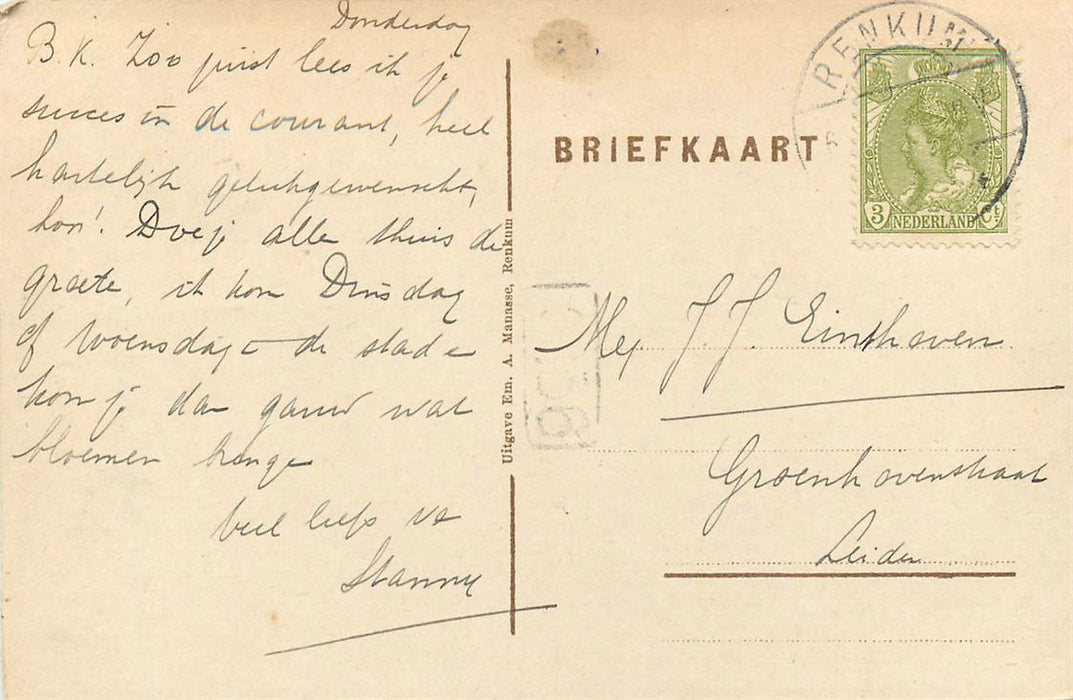 Donderdag
B. K. Zoo juist lees ik je
succes in de courant, heel
hartelijk gelukgewenscht,
hoor! Doe je alle thuis de
groete, ik kom Dinsdag
of Woensdag de stad e
kom je dan gauw wat
bloemen brenge
veel liefs va
Uitgave Em. A. Manasse, Renkum
BRIEFKAART
RENKUM
3 NEDERLAND Ct
Mej J. J. Einthoven
Groenhovenstraat
Leiden